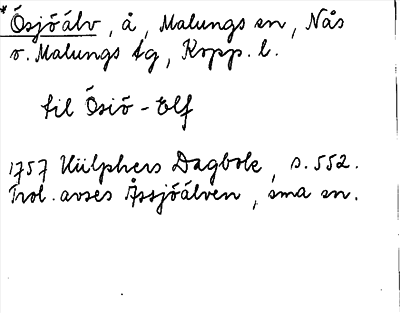 *Ösjöälv, å, Malungs sn, Nås
o. Malungs tg, Kopp. l.
til Ösiö-Elf
1757 Hülphers Dagbok, s. 552.
Trol. avses Åssjöälven, sma sn.